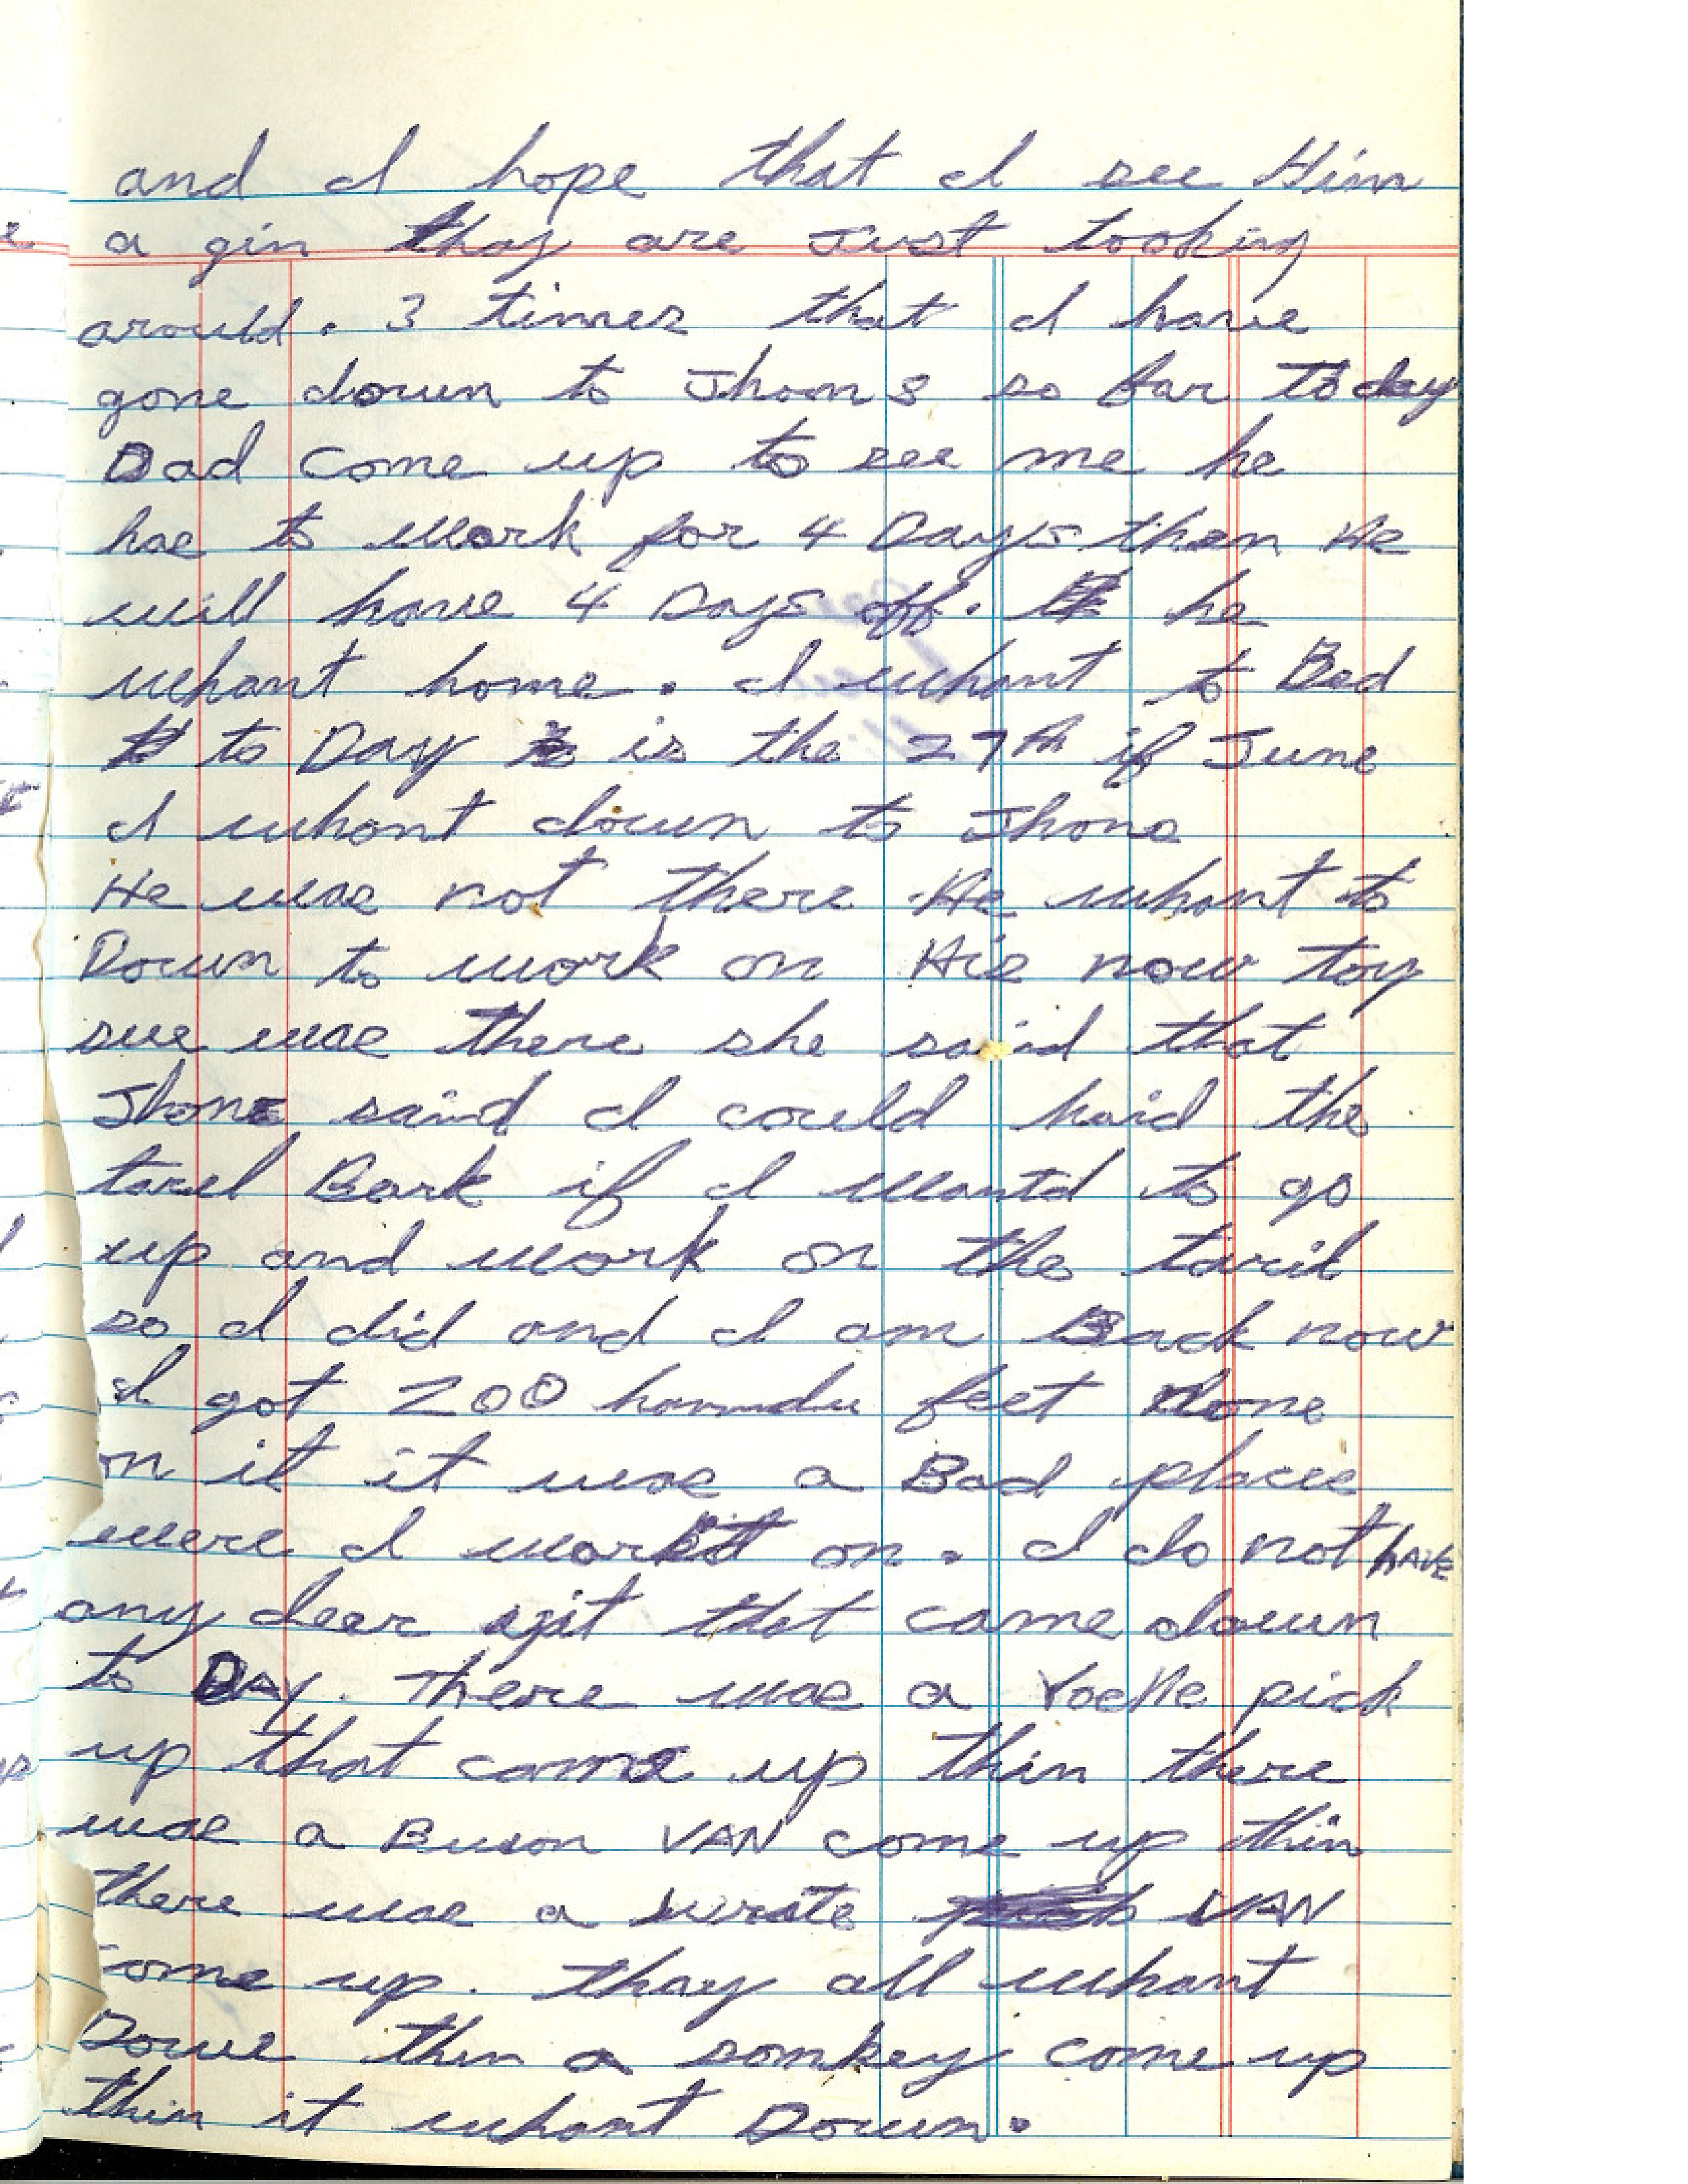 and I hope that I see Him
a gin thay are Just looking
arould. 3 times that I have
gone down to Jhons so far to day
Dad come up to see me he
hae to work for 4 Days then He
will have 4 Days off. he
whant home. I whant to Bed
to Day is the 27th if June
I whant down to Jhons
He wae not there He whant to
Down to work on Hie now toy
sue wae there she said that
Jhone said I could haid the
tarel Bark if I wantd to go
up and work on the taril
so I did and I am Back now
I got 200 feet done
on it it wae a Bad placee
were I workit on. I do not HAVE
any dear yit that came down
to DAy. There wae a pick
up that came up thin there
wae a Buson VAN come up thin
there wae a VAN
come up. thay all whant
Dowe then a somkey come up
thin it whant Down.